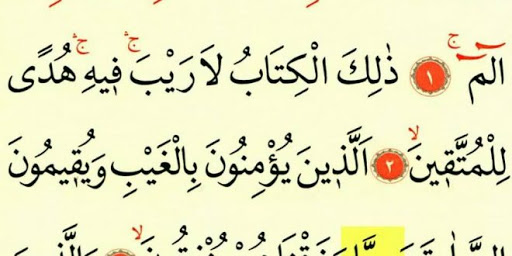 الٓمٓ ۚ ﴿١﴾ ذٰلِكَ الْكِتَابُ لَا رَيْبَ ۚ فٖيهِ ۚ هُدًى
لِلْمُتَّقٖينَ ۙ ﴿٢﴾ اَلَّذٖينَ يُؤْمِنُونَ بِالْغَيْبِ وَيُقٖيمُونَ